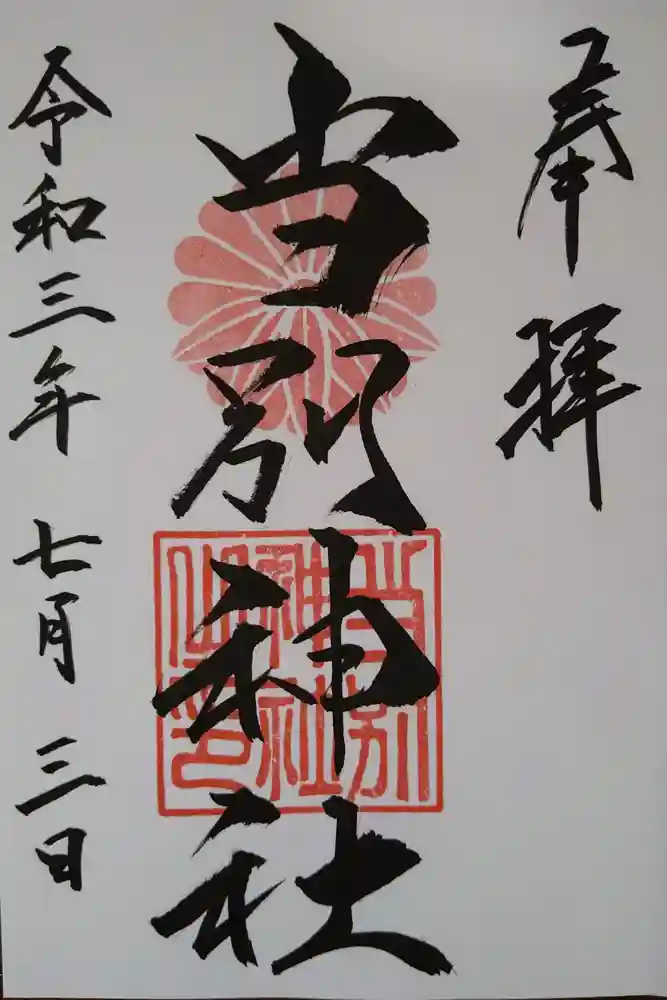 奉拝
当別神社
当別
神社
之印
令和三年七月三日